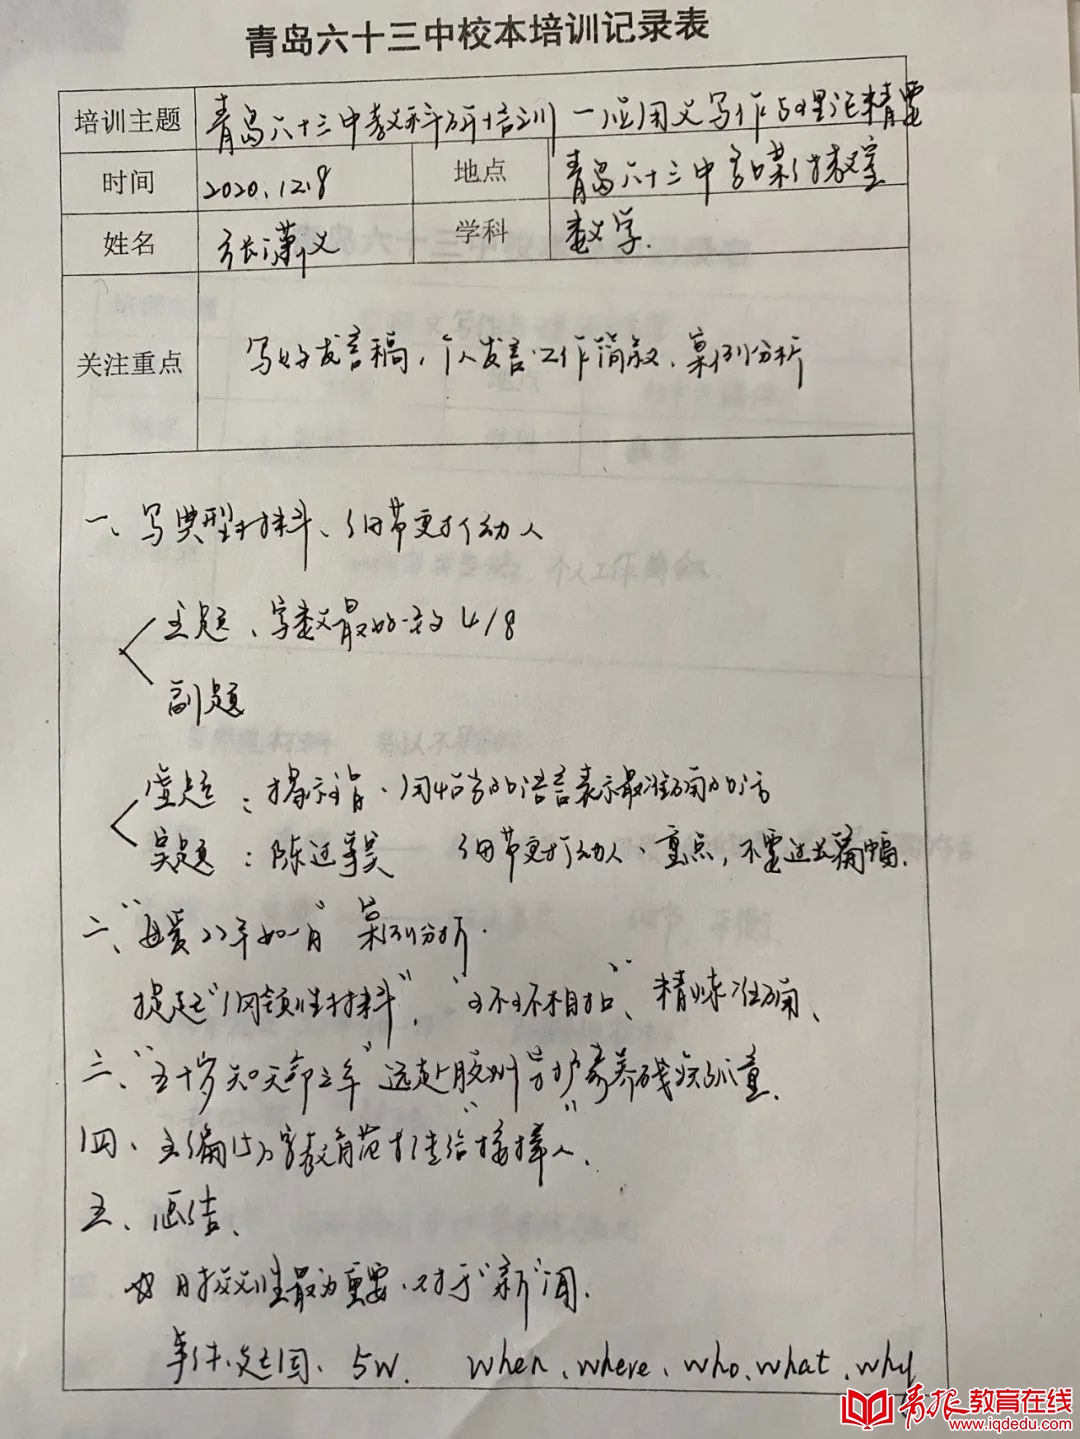 青岛六十三中校本培训记录表
培训主题 青岛六十三中教科研培训一应用文写作与理论精要
时间 2020.12.8 地点 青岛六十三中录课教室
姓名 张潇义 学科 数学.
关注重点 写好发言稿、个人发言、工作简叙、案例分析
一、写典型材料、细节更打动人
主题、字数最好一致 4/8
副题
虚题：揭示主旨、用恰当的语言表示最准确的话
实题：陈述事实 细节更打动人、重点,不要过长篇幅.
二、 22年如一日" 案例分析.
提起"纲领性材料"、"环环相扣"、精炼准确、
三、"五十岁知天命之年"远赴胶州 养残疾孤童.
四、主编15万字教育 给"接棒人".
五、通信、
时效性最为重要、对于"新"闻.
事件、起因、5W. when、where、who、what、why
青报教育在线
www.iqdedu.com